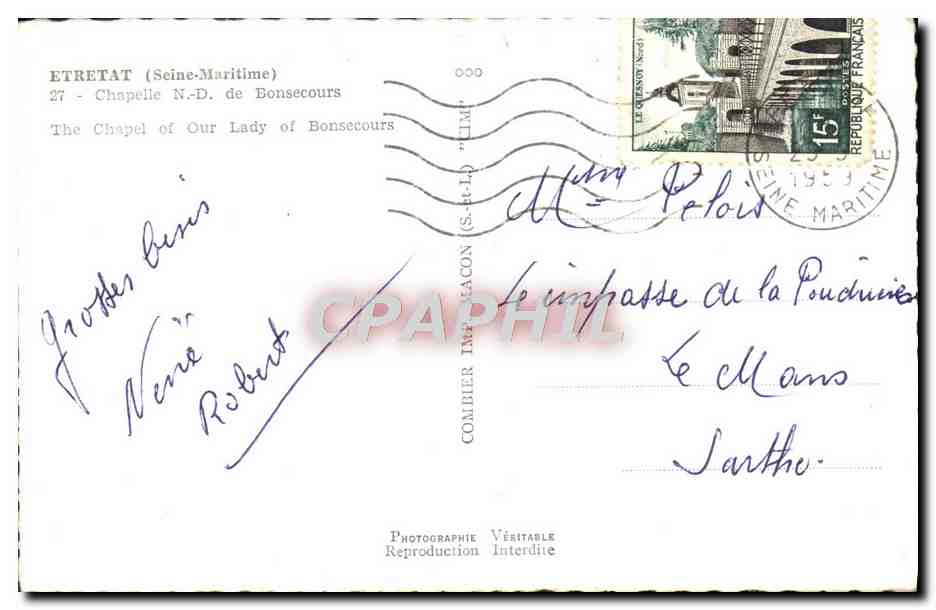 ETRETAT (Seine-Maritime)
27 - Chapelle N.-D. de Bonsecours
The Chapel of Our Lady of Bonsecours
Grosses bisis
Robert
COMBIER IMP. MACON (S.-et-L.) "CIM"
000
LE QUESNOY (Nord)
15F
POSTES
REPUBLIQUE FRANÇAISE
1959
SEINE MARITIME
Mme Pelois
Le impasse de la Poudrière
Le Mans
Sarthe.
CPAPHIL
PHOTOGRAPHIE VÉRITABLE
Reproduction Interdite